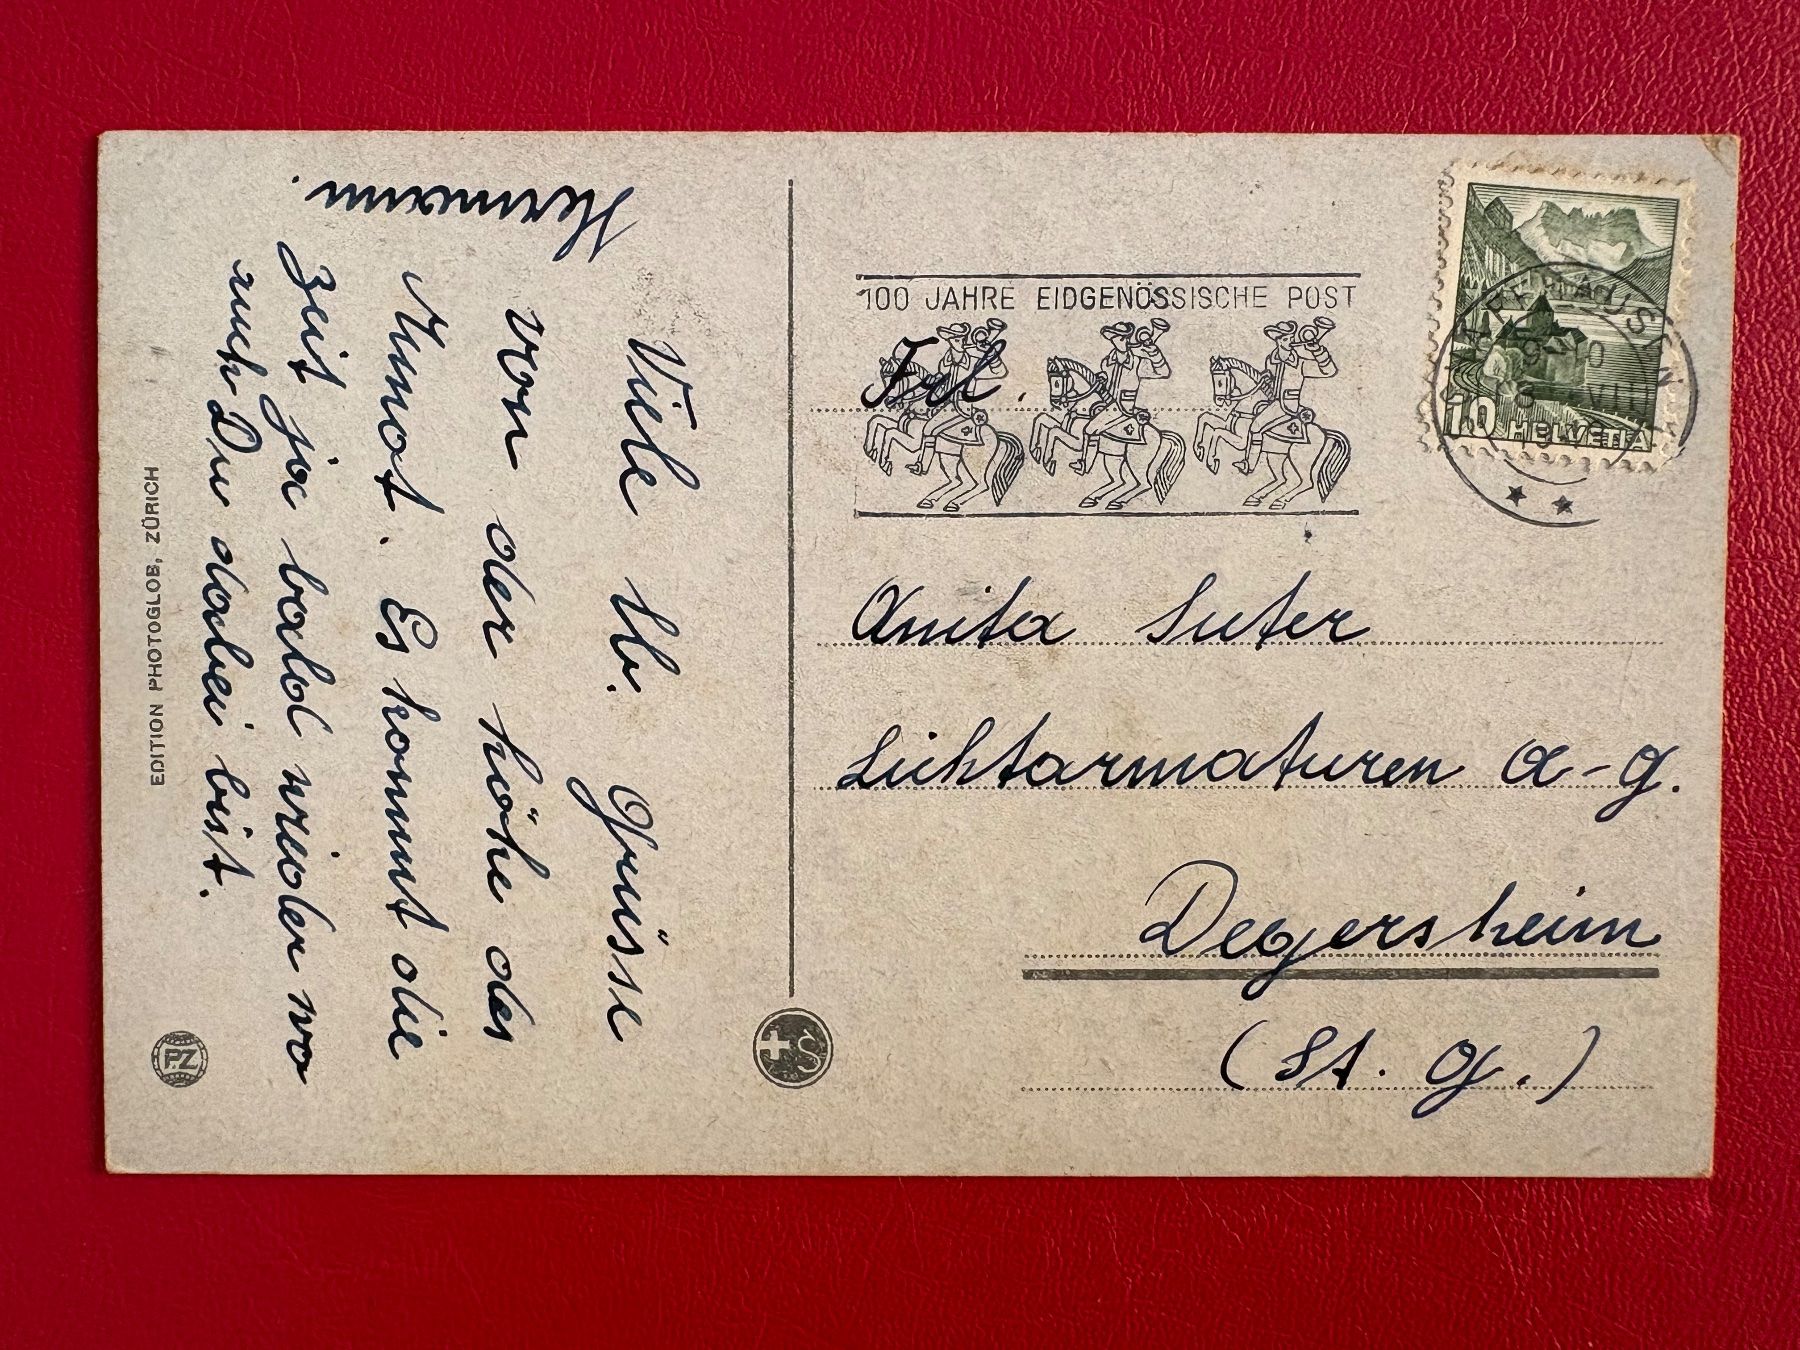 Viele lb. Grüsse
von der höhe des
Es kommt die
zeit ja bald wieder wo
auch Du dabei bist.
Hermann.
EDITION PHOTOGLOB, ZÜRICH
PZ
S
100 JAHRE EIDGENÖSSISCHE POST
10 HELVETIA
Frl.
Anita Suter
Lichtarmaturen A-G.
Degersheim
(St. G.)